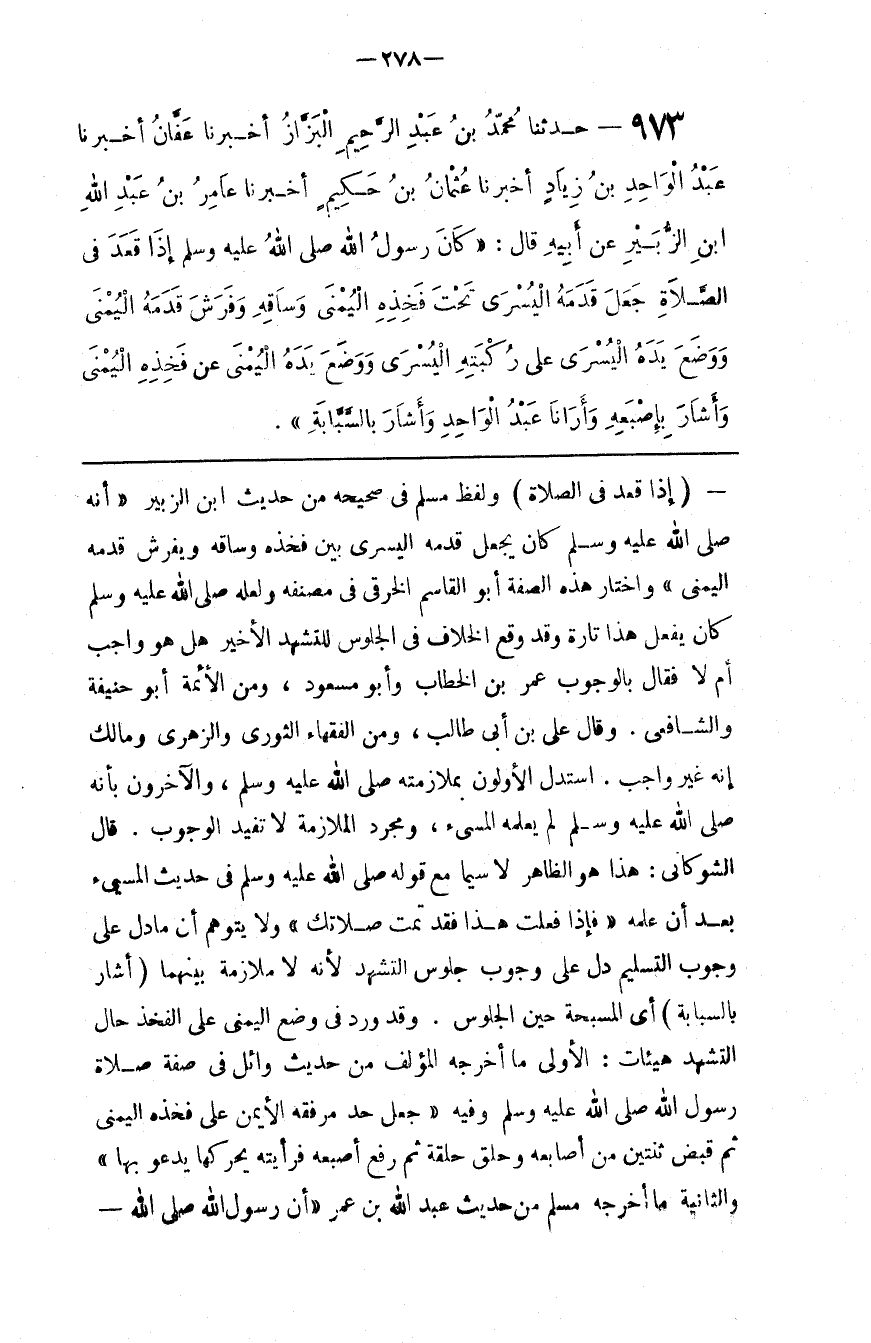 — ٢٧٨ —
٩٧٣ — حـدثنا مُحَمَّدُ بنُ عَبْدِ الرَّحِيمِ الْبَزَّازُ أخـبرنا عَفَّانُ أخـبرنا
عَبْدُ الْوَاحِدِ بنُ زِيَادٍ أخبرنا عُثْمَانُ بنُ حَـكِيمٍ أخـبرنا عَامِرُ بنُ عَبْدِ اللهِ
ابنِ الزُّبَـيْرِ عن أَبِيهِ قال : « كَانَ رسولُ الله صلى اللهُ عليه وسلم إِذَا قَعَدَ فى
الصَّـلَاةِ جَعَلَ قَدَمَهُ الْيُسْرَى تَحْتَ فَخِذِهِ الْيُمْنَى وَسَاقِهِ وَفَرَشَ قَدَمَهُ الْيُمْنَى
وَوَضَعَ يَدَهُ الْيُسْرَى على رُكْبَتِهِ الْيُسْرَى وَوَضَعَ يَدَهُ الْيُمْنَى عن فَخِذِهِ الْيُمْنَى
وَأَشَارَ بِإِصْبَعِهِ وَأَرَانَا عَبْدُ الْوَاحِدِ وَأَشَارَ بالسَّبَّابَةِ » .
— ( إذا قعد فى الصلاة ) ولفظ مسلم فى صحيحه من حديث ابن الزبير « أنه
صلى الله عليه وسـلم كان يجعل قدمه اليسرى بين فخذه وساقه ويفرش قدمه
اليمنى » واختار هذه الصفة أبو القاسم الخرقى فى مصنفه ولعله صلى الله عليه وسلم
كان يفعل هذا تارة وقد وقع الخلاف فى الجلوس للتشهد الأخير هل هو واجب
أم لا فقال بالوجوب عمر بن الخطاب وأبو مسعود ، ومن الأئمة أبو حنيفة
والشـافعى . وقال على بن أبى طالب ، ومن الفقهاء الثورى والزهرى ومالك
إنه غير واجب . استدل الأولون بملازمته صلى الله عليه وسلم ، والآخرون بأنه
صلى الله عليه وسـلم لم يعلمه المسىء ، ومجرد الملازمة لا تفيد الوجوب . قال
الشوكانى : هذا هو الظاهر لا سيما مع قوله صلى الله عليه وسلم فى حديث المسىء
بعـد أن علمه « فإذا فعلت هـذا فقد تمت صـلاتك » ولا يتوهم أن مادل على
وجوب التسليم دل على وجوب جلوس التشهد لأنه لا ملازمة بينهما ( أشار
بالسبابة ) أى المسبحة حين الجلوس . وقد ورد فى وضع اليمنى على الفخذ حال
التشهد هيئات : الأولى ما أخرجه المؤلف من حديث وائل فى صفة صـلاة
رسول الله صلى الله عليه وسلم وفيه « جعل حد مرفقه الأيمن على فخذه اليمنى
ثم قبض ثنتين من أصابعه وحلق حلقة ثم رفع أصبعه فرأيته يحركها يدعو بها »
والثانية ما أخرجه مسلم من حديث عبد الله بن عمر « أن رسول الله صلى الله —